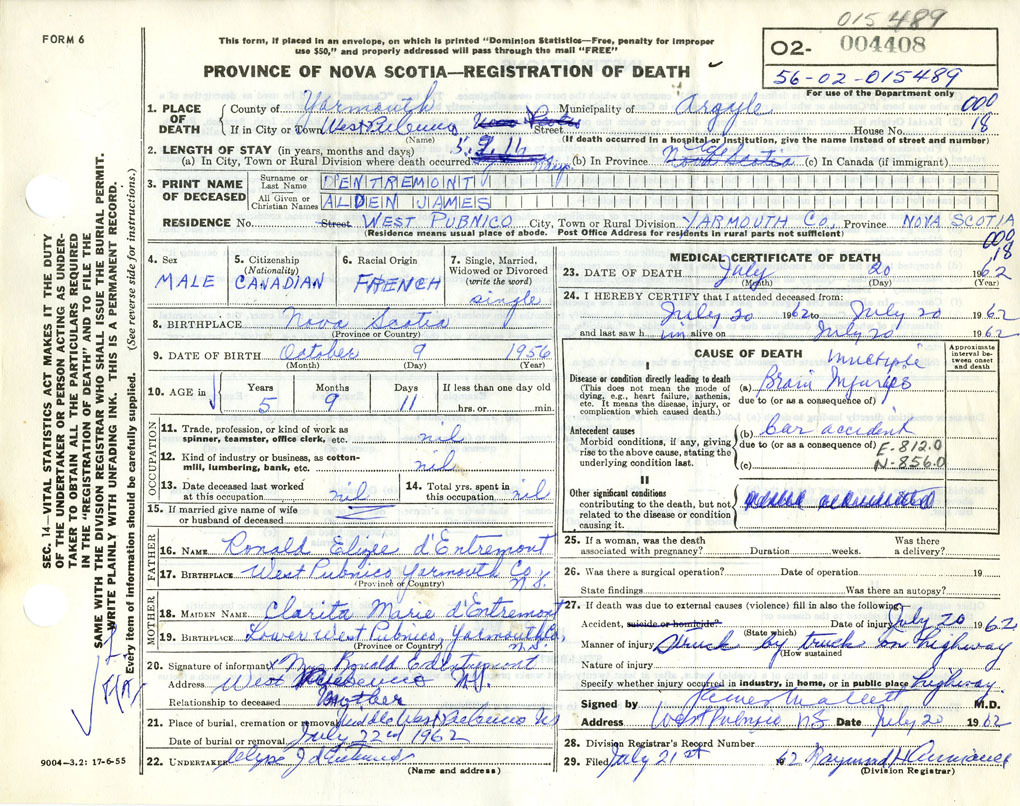 015489
FORM 6
This form, if placed in an envelope, on which is printed "Dominion Statistics—Free, penalty for improper
use $50," and properly addressed will pass through the mail "FREE"
O2- 004408
56-02-015489
For use of the Department only
PROVINCE OF NOVA SCOTIA—REGISTRATION OF DEATH
000
18
1. PLACE OF DEATH
County of Yarmouth Municipality of Argyle
If in City or Town West Pubnico Street House No.
(Name) (If death occurred in a hospital or institution, give the name instead of street and number)
2. LENGTH OF STAY (in years, months and days)
(a) In City, Town or Rural Division where death occurred (b) In Province Nova Scotia (c) In Canada (if immigrant)
3. PRINT NAME OF DECEASED
Surname or Last Name D'ENTREMONT
All Given or Christian Names ALDEN JAMES
RESIDENCE No. Street WEST PUBNICO City, Town or Rural Division YARMOUTH Co, Province NOVA SCOTIA
(Residence means usual place of abode. Post Office Address for residents in rural parts not sufficient)
000
18
4. Sex
MALE
5. Citizenship
(Nationality)
CANADIAN
6. Racial Origin
FRENCH
7. Single, Married,
Widowed or Divorced
(write the word)
single
8. BIRTHPLACE Nova Scotia
(Province or Country)
9. DATE OF BIRTH October 9 1956
(Month) (Day) (Year)
10. AGE in
Years Months Days If less than one day old
5 9 11 hrs. or min.
OCCUPATION
11. Trade, profession, or kind of work as
spinner, teamster, office clerk, etc. nil
12. Kind of industry or business, as cotton-
mill, lumbering, bank, etc. nil
13. Date deceased last worked
at this occupation nil
14. Total yrs. spent in
this occupation nil
15. If married give name of wife
or husband of deceased
FATHER
16. NAME Ronald Elizée d'Entremont
17. BIRTHPLACE West Pubnico Yarmouth Co. N.S.
(Province or Country)
MOTHER
18. MAIDEN NAME Clarita Marie d'Entremont
19. BIRTHPLACE Lower West Pubnico, Yarmouth Co, N.S.
(Province or Country)
20. Signature of informant x Mrs Ronald E d'Entremont
Address West Pubnico N.S.
Relationship to deceased Mother
21. Place of burial, cremation or removal Middle West Pubnico NS
Date of burial or removal July 22nd 1962
22. UNDERTAKER
(Name and address)
MEDICAL CERTIFICATE OF DEATH
23. DATE OF DEATH July 20 1962
(Month) (Day) (Year)
24. I HEREBY CERTIFY that I attended deceased from:
July 20 1962 to July 20 1962
and last saw him alive on July 20 1962
CAUSE OF DEATH
Approximate interval between onset and death
I
Disease or condition directly leading to death
(This does not mean the mode of
dying, e.g., heart failure, asthenia,
etc. It means the disease, injury, or
complication which caused death.)
(a) Multiple Brain Injuries
due to (or as a consequence of)
Antecedent causes
Morbid conditions, if any, giving
rise to the above cause, stating the
underlying condition last.
(b) Car accident
due to (or as a consequence of)
(c)
E-812.0
N-856.0
II
Other significant conditions
contributing to the death, but not
related to the disease or condition
causing it.
25. If a woman, was the death Was there
associated with pregnancy? Duration weeks. a delivery?
26. Was there a surgical operation? Date of operation 19
State findings Was there an autopsy?
27. If death was due to external causes (violence) fill in also the following:
Accident, suicide or homicide? Date of injury July 20 1962
(State which)
Manner of injury Struck by truck on highway
(How sustained)
Nature of injury
Specify whether injury occurred in industry, in home, or in public place highway
Signed by M.D.
Address West Pubnico NS Date July 20 1962
28. Division Registrar's Record Number
29. Filed July 21st 1962
(Division Registrar)
SEC. 14—VITAL STATISTICS ACT MAKES IT THE DUTY
OF THE UNDERTAKER OR PERSON ACTING AS UNDER-
TAKER TO OBTAIN ALL THE PARTICULARS REQUIRED
IN THE "REGISTRATION OF DEATH" AND TO FILE THE
SAME WITH THE DIVISION REGISTRAR WHO SHALL ISSUE THE BURIAL PERMIT.
WRITE PLAINLY WITH UNFADING INK. THIS IS A PERMANENT RECORD.
Every item of information should be carefully supplied. (See reverse side for instructions.)
9004—3.2: 17-6-55